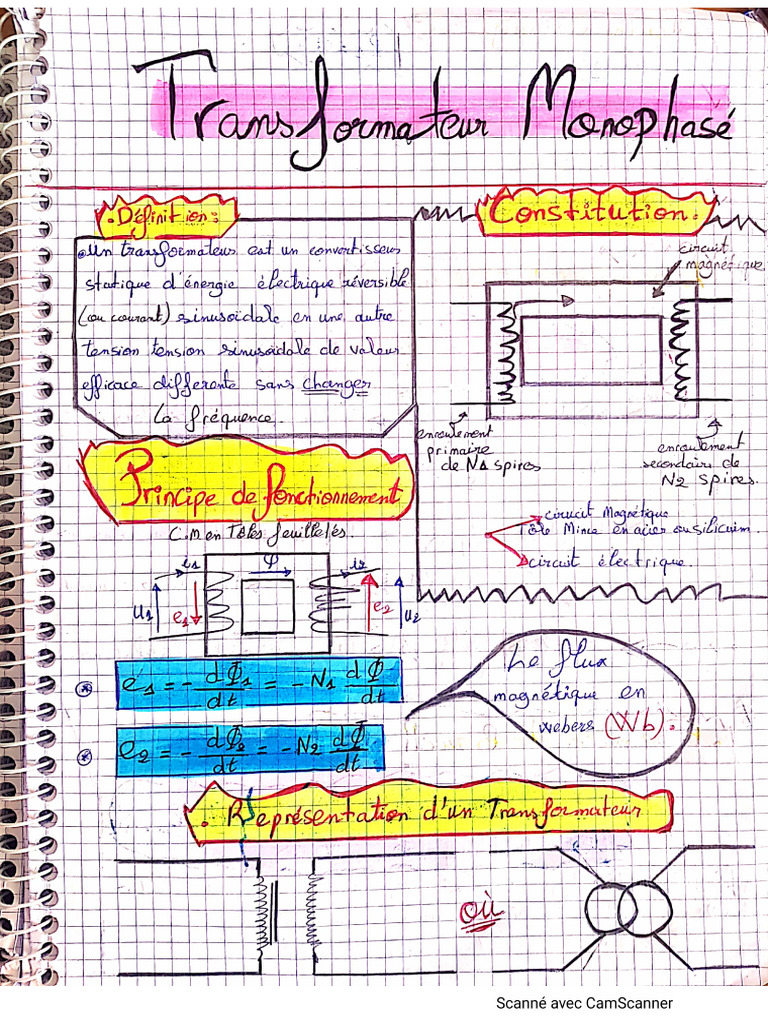 Transformateur Monophasé
. Définition :
Un transformateur est un convertisseur
statique d'énergie électrique réversible
(ou courant) sinusoïdale en une autre
tension tension sinusoïdale de valeur
efficace differente sans changer
la fréquence.
Constitution.
circuit
magnétique
enroulement
primaire
de N1 spires
enroulement
secondaire de
N2 spires.
circuit Magnétique
Tôle Mince en acier au silicium.
circuit électrique.
Principe de fonctionnement
C.M en Tôles feuilletés.
i1 φ i2
u1 e1 e2 u2
e1 = - dΦ1/dt = - N1 dΦ/dt
e2 = - dΦ2/dt = - N2 dΦ/dt
Le flux
magnétique en
webers (Wb).
. Représentation d'un Transformateur
où
Scanné avec CamScanner